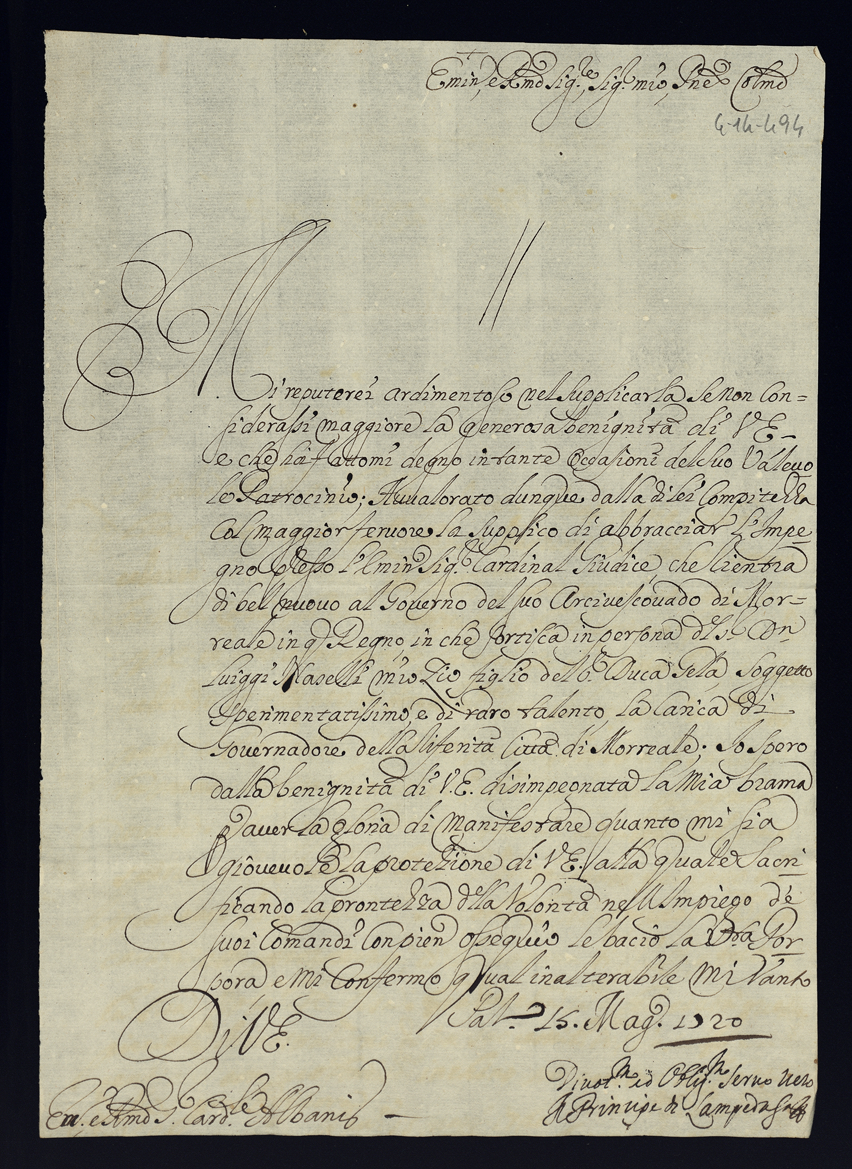 Emin, e Rmo Sig.re, Sig.r mio, Pne Colmo
4-14-494
Mi reputerei ardimentoso nel supplicarla se non con=
siderassi maggiore la generosa benignità di VE
e che hà fattomi degno in tante occasioni del suo Valevo
le Patrocinio; Avvalorato dunque dalla di lei Compitezza
col maggior fervore la supplico di abbracciar l'Impe-
gno presso l'Emin Sig.r Cardinal Giudice, che rientra
di bel nuovo al Governo del suo Arcivescovado di Mor=
reale in q.o Regno, in che sortisca in persona di Dn
Luiggi Naselli mio Zio figlio del Duca Gela soggetto
sperimentatissimo, e di raro talento, la Carica di
Governadore della riferita Città di Morreale. Io spero
dalla benignità di V.E. disimpegnata la mia brama
p aver la gloria di manifestare quanto mi sia
giovevole la protezione di VE. alla quale sacri-
ficando la prontezza della Volontà nell'Impiego de
suoi Comandi con pien ossequio le bacio la Vra Por
pora e mi Confermo qual inalterabile mi vanto
Di VE.
Pal. 15. Mag. 1720
Divot.mo ed Oblig.mo Servo Vero
Il Principe di Lampedusa
Em, e Rmo S. Card.le Albani